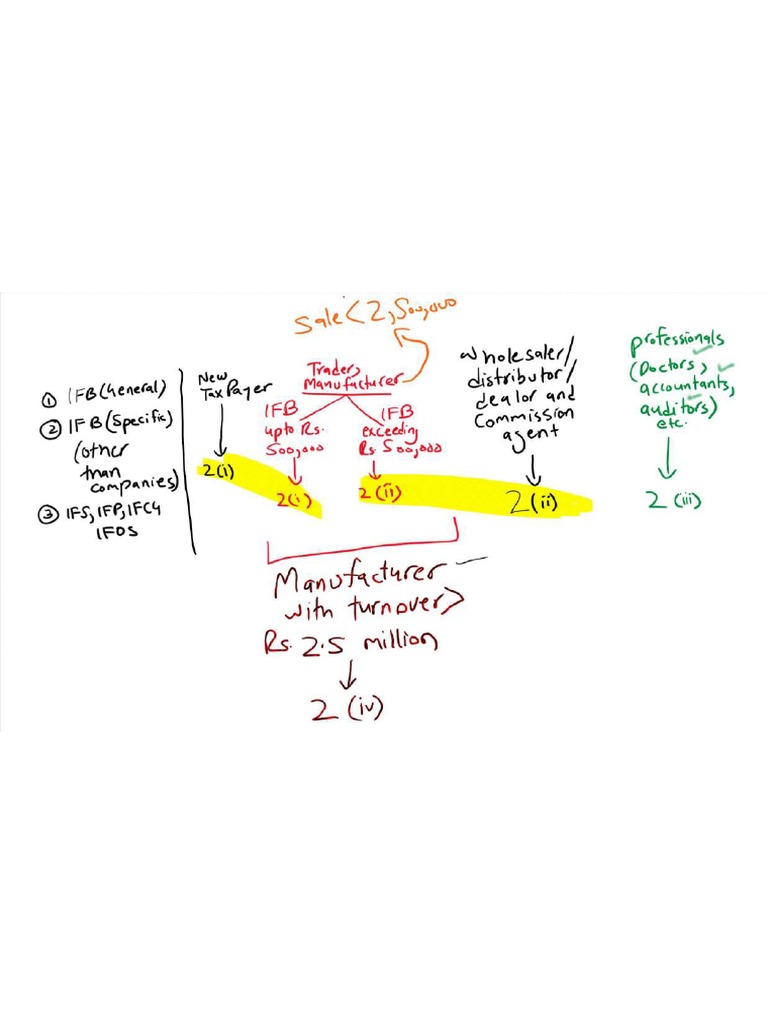 Sale < 2,500,000
① IFB (General)
② IFB (Specific)
(other
than
companies)
③ IFS, IFP, IFCG
IFOS
New
Tax Payer
2(i)
Trader,
Manufacturer
IFB
upto Rs.
500,000
2(i)
IFB
exceeding
Rs. 500,000
2(ii)
Wholesaler/
distributor/
dealor and
Commission
agent
2(ii)
professionals
(Doctors,
accountants,
auditors)
etc.
2(iii)
Manufacturer
with turnover >
Rs. 2.5 million
2(iv)